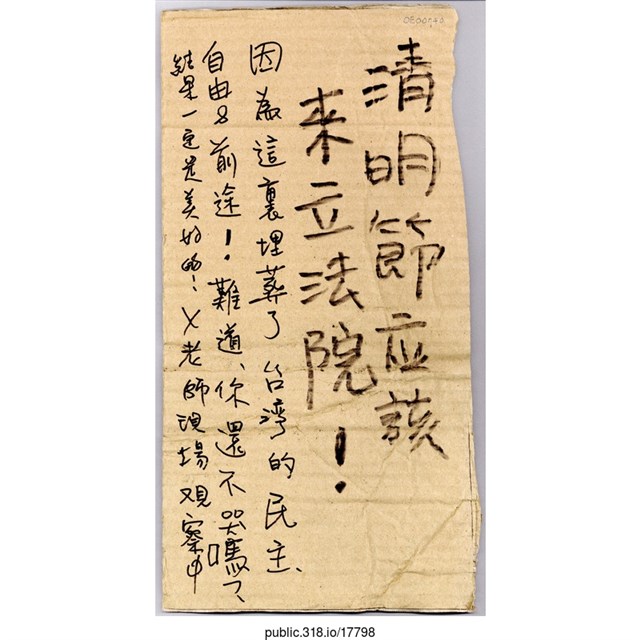 清明節应該
來立法院！
因為這裏埋葬了台湾的民主、
自由&前途！難道、你還不哭嗎？
結果一定是美好的！老師現場观察中
public.318.io/17798